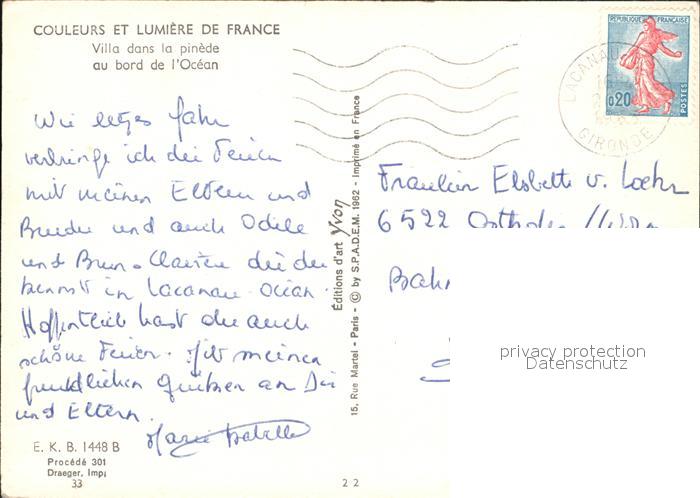 COULEURS ET LUMIÈRE DE FRANCE
Villa dans la pinède
au bord de l'Océan
Wie letzes Jahr
verbringe ich die Ferien
mit meinen Eltern und
Bruder und auch Odile
und Brun. die du
kennst in Lacanau Océan.
Hoffentlich hast du auch
schöne Ferien. Mit meinen
freundlichen Grüssen an Dir
und Eltern.
Marie Isabelle
E. K. B. 1448 B
Procédé 301
Draeger, Imp.
33
22
Éditions d'art Yvon
15, Rue Martel - Paris - © by S.P.A.D.E.M. 1962 - Imprimé en France
RÉPUBLIQUE FRANÇAISE
0,20
POSTES
LACANAU
GIRONDE
Fräulein Elsbette v.
6522 Osthofen
Bahn
privacy protection
Datenschutz